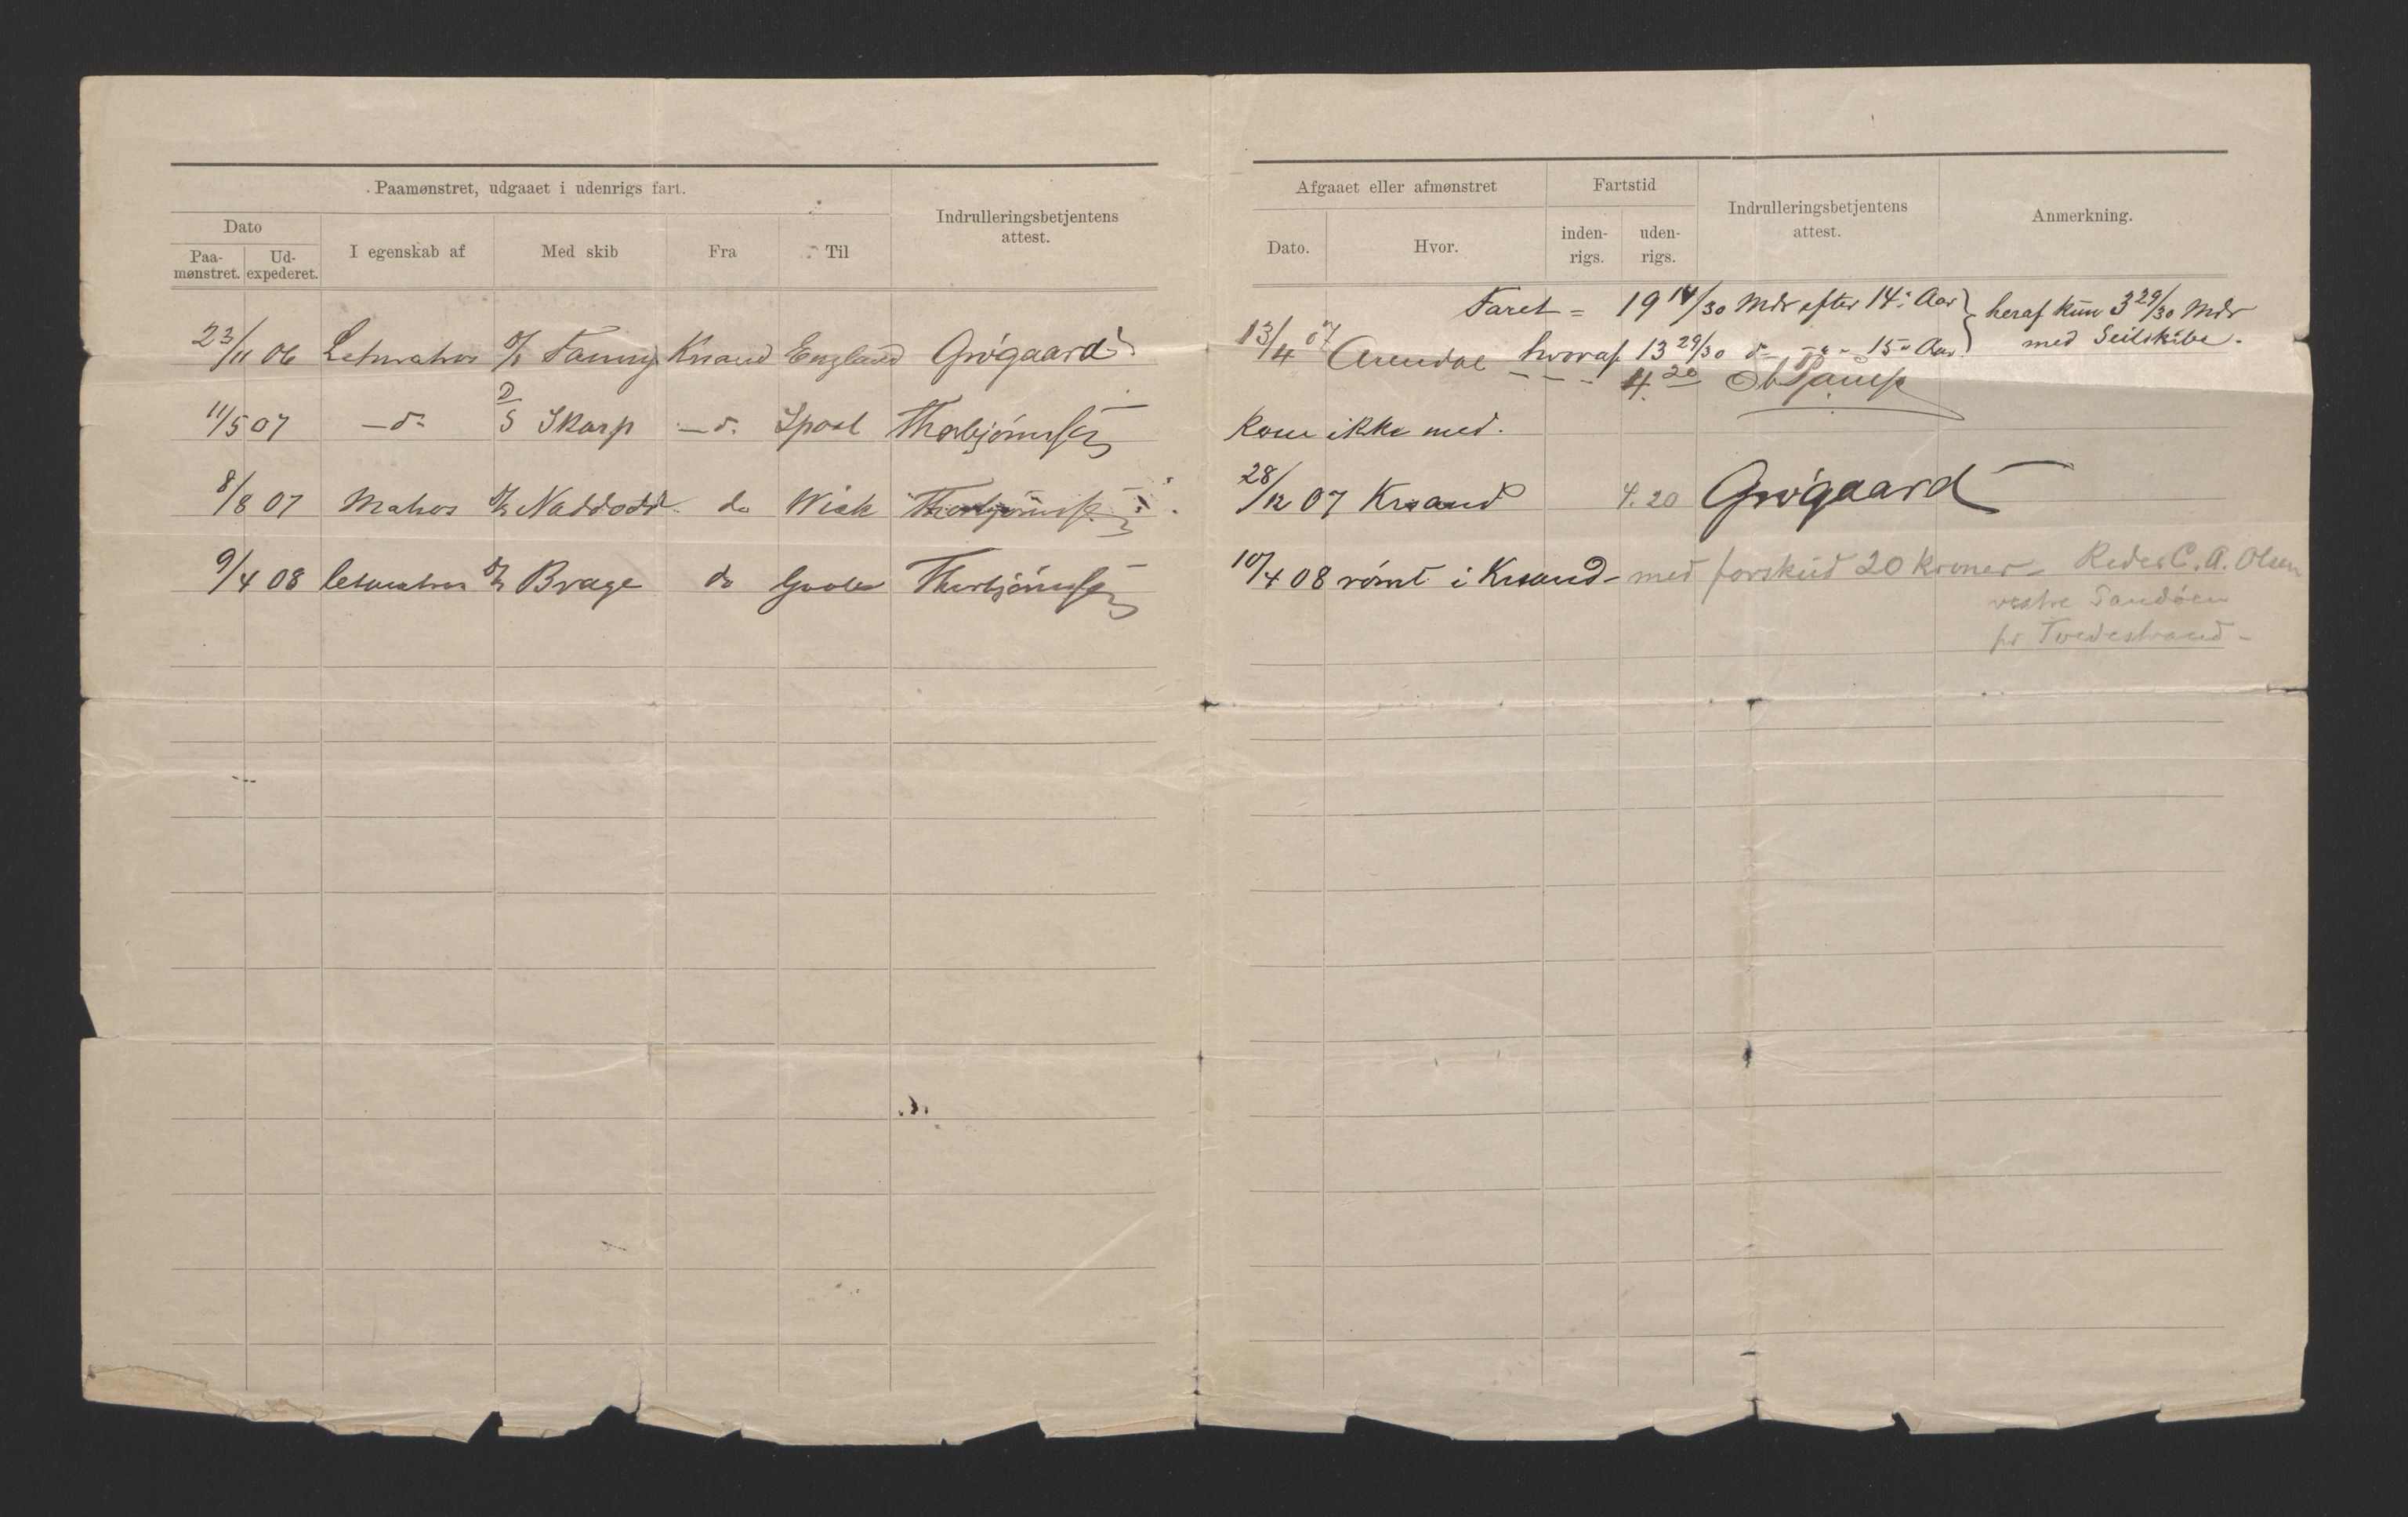 Paamønstret, udgaaet i udenrigs fart.
Indrulleringsbetjentens
attest.
Dato
Paa-
mønstret.
Ud-
expederet.
I egenskab af
Med skib
Fra
Til
23/11 06 Letmatros S/S Fanny Krsand England Grøgaard
11/5 07 - do - D/S Skarp - do. Spool Thorbjørnsen
8/8 07 Matros S/S Naddodd do Wick Thorbjørnsen
9/4 08 Letmatros S/S Brage do Goole Thorbjørnsen
Afgaaet eller afmønstret
Fartstid
Indrulleringsbetjentens
attest.
Anmerkning.
Dato.
Hvor.
inden-
rigs.
uden-
rigs.
Faret = 19 14/30 Mdr efter 14: Aar } heraf kun 3 29/30 Mdr
13/4 07 Arendal hvoraf 13 29/30 do - " - 15 " Aar. } med Seilskibe.
4.20
Kom ikke med.
28/12 07 Krsand 4.20 Grøgaard
10/4 08 rømt i Krsand - med forskud 20 kroner - Reder C. A. Olsen
vestre Sandøen
pr Tvedestrand -